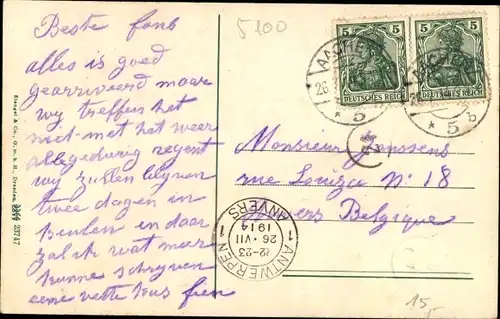 Beste fons
alles is goed
gearriveerd maar
wy treffen het
niet met het weer
allegedurig regent
wy zullen blyven
twee dagen in
Keulen en daar
zal ik wat meer
kunne schryven
eene vette kus fien
5100
5 5
DEUTSCHES REICH
5 5
DEUTSCHES REICH
AACHEN
26
* 5
AACHEN
26
* 5 b
Monsieur Janssens
rue Louiza No 18
Anvers Belgique
1 ANTWERPEN 1
22-23
26 • VII
1914
ANVERS
Stengel & Co., G. m. b. H., Dresden
29747
15,-